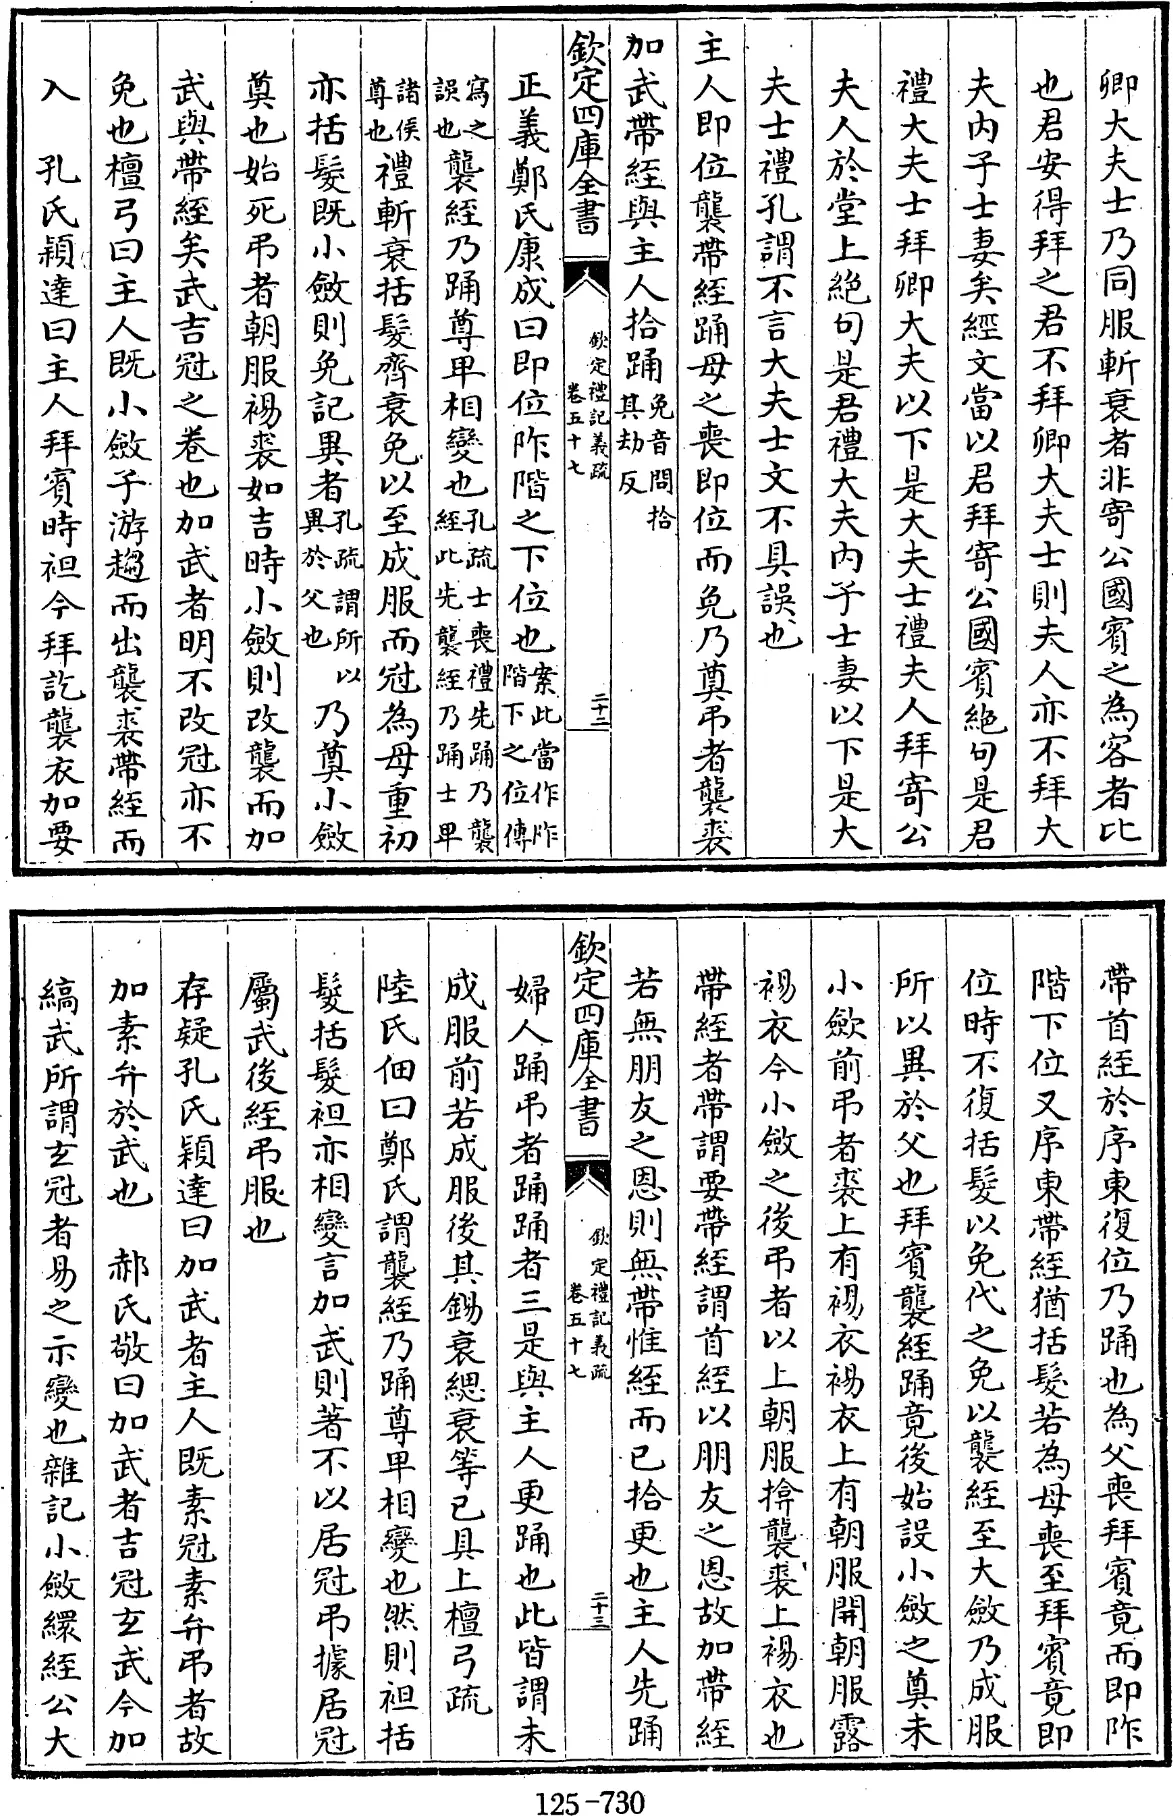 卿大夫士乃同服斬衰者非寄公國賓之為客者比
也君安得拜之君不拜卿大夫士則夫人亦不拜大
夫内子士妻矣經文當以君拜寄公國賓絶句是君
禮大夫士拜卿大夫以下是大夫士禮夫人拜寄公
夫人於堂上絶句是君禮大夫内子士妻以下是大
夫士禮孔謂不言大夫士文不具誤也
主人即位襲帶絰踊母之喪即位而免乃奠弔者襲裘
加武帶絰與主人拾踊免音問拾
其劫反
欽定四庫全書
欽定禮記義疏
卷五十七
二十二
正義鄭氏康成曰即位阼階之下位也案此當作阼
階下之位傳
寫之
誤也襲絰乃踊尊卑相變也孔疏士喪禮先踊乃襲
絰此先襲絰乃踊士卑
諸侯
尊也禮斬衰括髮齊衰免以至成服而冠為母重初
亦括髮既小斂則免記異者孔疏謂所以
異於父也乃奠小斂
奠也始死弔者朝服裼裘如吉時小斂則改襲而加
武與帶絰矣武吉冠之卷也加武者明不改冠亦不
免也檀弓曰主人既小斂子游趨而出襲裘帶絰而
入 孔氏穎達曰主人拜賓時袒今拜訖襲衣加要
帶首絰於序東復位乃踊也為父喪拜賓竟而即阼
階下位又序東帶絰猶括髮若為母喪至拜賓竟即
位時不復括髮以免代之免以襲絰至大斂乃成服
所以異於父也拜賓襲絰踊竟後始設小斂之奠未
小斂前弔者裘上有裼衣裼衣上有朝服開朝服露
裼衣今小斂之後弔者以上朝服揜襲裘上裼衣也
帶絰者帶謂要帶絰謂首絰以朋友之恩故加帶絰
若無朋友之恩則無帶惟絰而已拾更也主人先踊
欽定四庫全書
欽定禮記義疏
卷五十七
二十三
婦人踊弔者踊踊者三是與主人更踊也此皆謂未
成服前若成服後其錫衰緦衰等已具上檀弓疏
陸氏佃曰鄭氏謂襲絰乃踊尊卑相變也然則袒括
髮括髮袒亦相變言加武則著不以居冠弔據居冠
屬武後絰弔服也
存疑孔氏穎達曰加武者主人既素冠素弁弔者故
加素弁於武也 郝氏敬曰加武者吉冠玄武今加
縞武所謂玄冠者易之示變也雜記小斂環絰公大
125-730